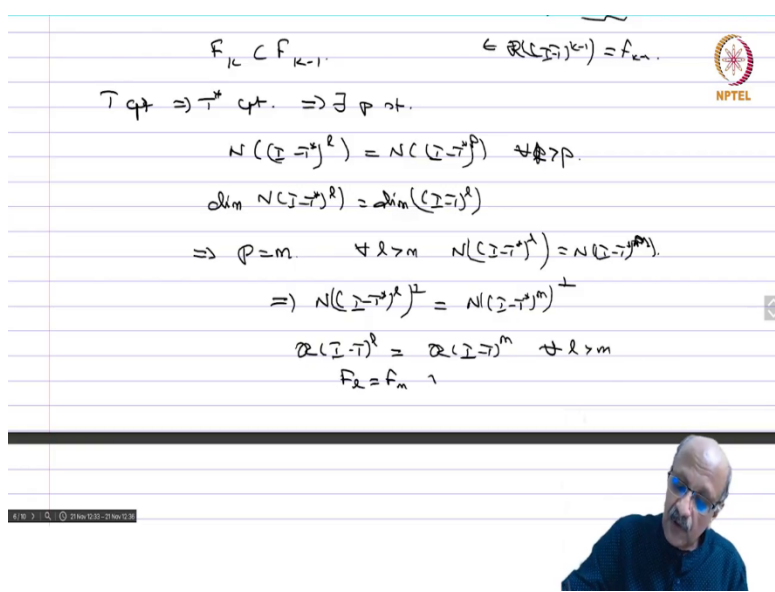 F_k ⊂ F_{k-1}. ∈ R((I-T)^{k-1}) = F_{k-1}.
NPTEL
T cpt ⇒ T* cpt. ⇒ ∃ p st.
N((I-T*)^l) = N((I-T*)^p) ∀ l>p.
dim N(I-T*)^l) = dim((I-T)^l)
⇒ p=m. ∀ l>m N((I-T*)^l) = N(I-T*)^m).
⇒ N((I-T*)^l)^⊥ = N((I-T*)^m)^⊥
R(I-T)^l = R(I-T)^m ∀ l>m
F_l = F_m
6/10 21 Nov 12:33 – 21 Nov 12:36